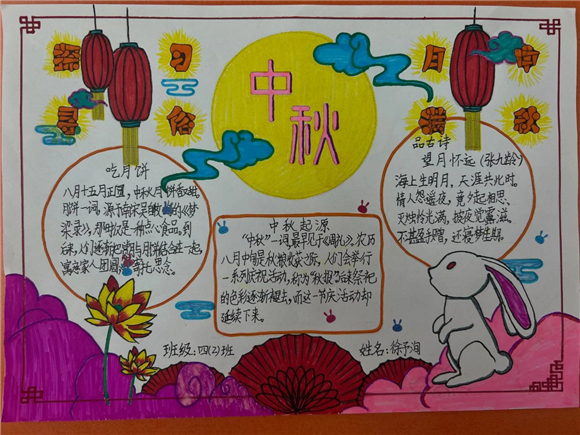 习
俗
中秋
月
满
中
秋
吃月饼
八月十五月正圆，中秋月饼香又甜。
月饼一词，源于南宋吴自牧的《梦
梁录》，那时仅是一种点心食品。到
后来，人们逐渐把赏月与月饼结合在一起，
寓意家人团圆，寄托思念。
中秋起源
“中秋”一词，最早见于《周礼》，农历
八月中旬是秋粮收获之际，人们会举行
一系列庆祝活动，称为“秋报”后来祭祀
的色彩逐渐褪去，而这一节庆活动却
延续下来。
品古诗
望月怀远（张九龄）
海上生明月，天涯共此时。
情人怨遥夜，竟夕起相思。
灭烛怜光满，披衣觉露滋。
不堪盈手赠，还寝梦佳期。
班级：四（2）班
姓名：徐予洵